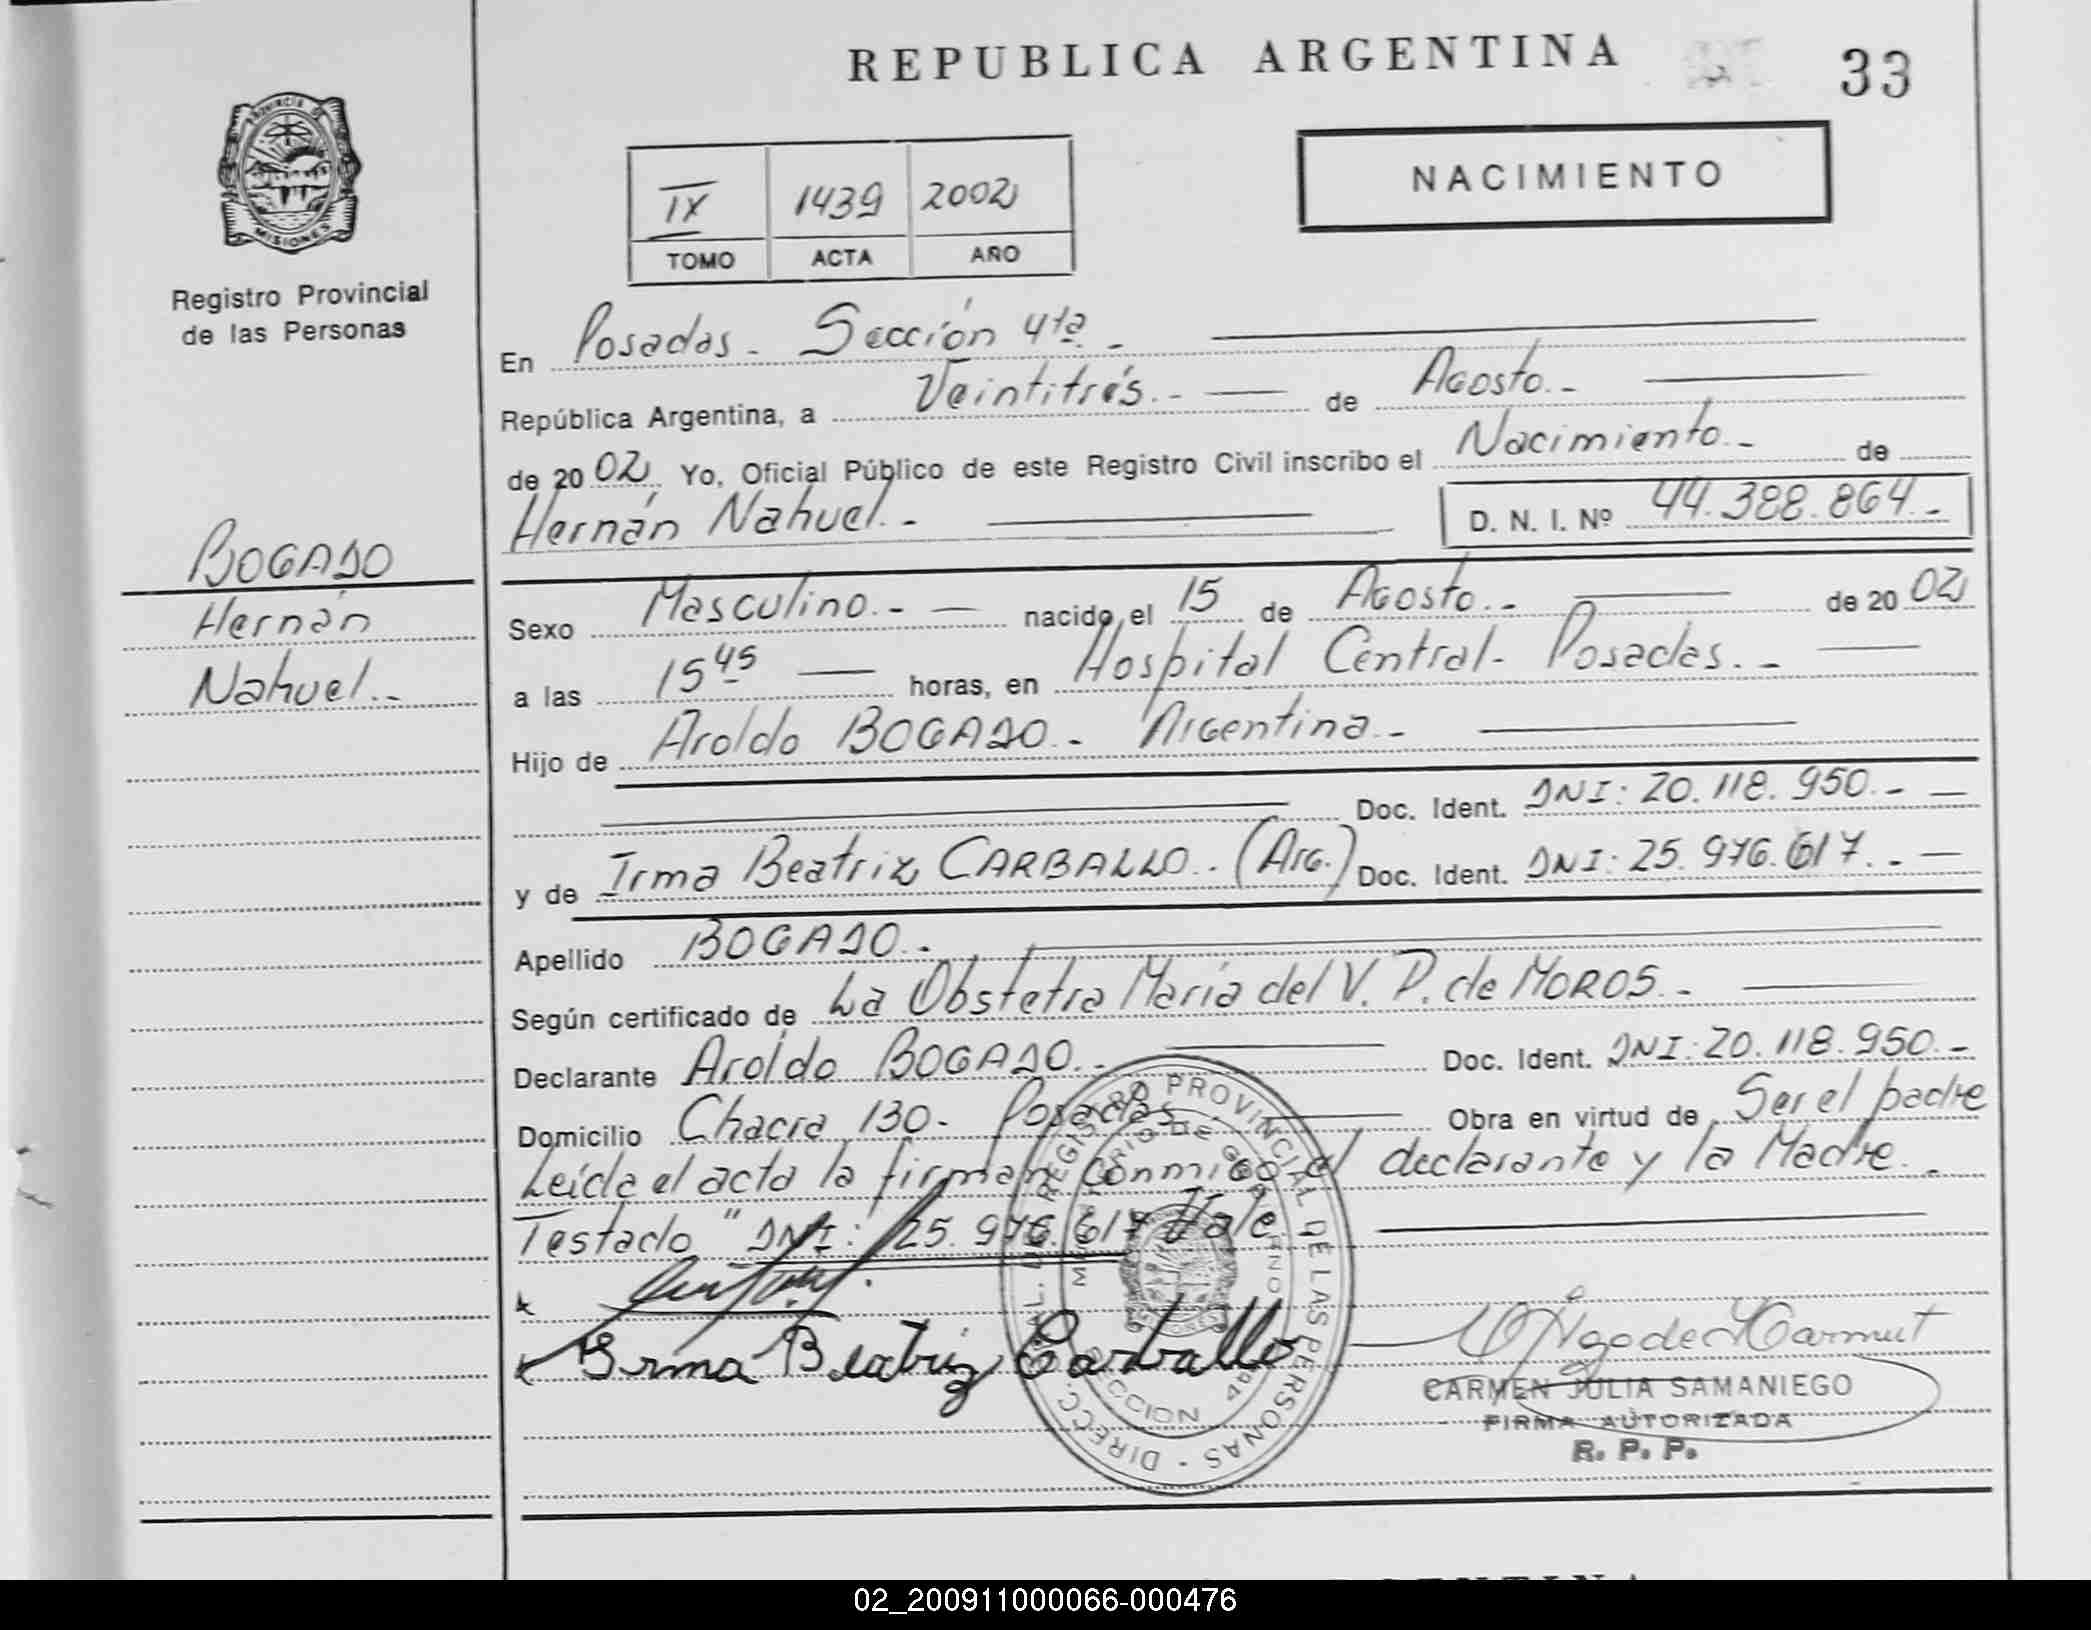 REPUBLICA ARGENTINA
33
PROVINCIA DE
MISIONES
Registro Provincial
de las Personas
NACIMIENTO
IX 1439 2002
TOMO ACTA AÑO
En Posadas - Sección 4ta. -
República Argentina, a Veintitrés. - de Agosto. -
de 20 02 Yo, Oficial Público de este Registro Civil inscribo el Nacimiento. - de
Hernán Nahuel. - D. N. I. Nº 44.388.864. -
BOGADO
Hernán
Nahuel. -
Sexo Masculino. - nacido el 15 de Agosto. - de 20 02
a las 15 45 horas, en Hospital Central - Posadas. -
Hijo de Aroldo BOGADO. - Argentina. -
Doc. Ident. DNI: 20.118.950. -
y de Irma Beatriz CARBALLO. (Arg.) Doc. Ident. DNI: 25.976.617. -
Apellido BOGADO. -
Según certificado de La Obstetra María del V. P. de MOROS. -
Declarante Aroldo BOGADO. - Doc. Ident. DNI: 20.118.950. -
Domicilio Chacra 130 - Posadas Obra en virtud de Ser el padre
Leída el acta la firman conmigo el declarante y la Madre. -
Testado "DNI: 25.976.617 Vale
Irma Beatriz Carballo
CARMEN JULIA SAMANIEGO
FIRMA AUTORIZADA
R. P. P.
REGISTRO PROVINCIAL DE LAS PERSONAS
02_200911000066-000476